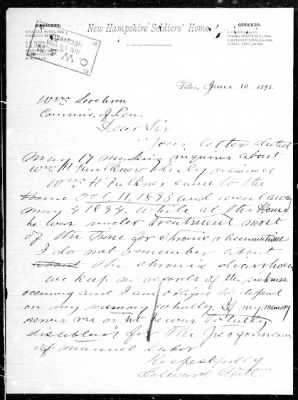 New Hampshire Soldiers' Home
Tilton, June 10 1895
Wm Lochren
Commis. of Pen.
Dear Sir
Your letter dated
May 17 making inquiries about
Wm H Faulkner duly received
Wm H Faulkner came to the
Home Oct 11, 1893 and went away
May 4 1894 while at the Home
he was under treatment most
of the time for chronic Rheumatism
I do not remember about
the chronic diarrhoea
we keep no record of the sickness
occuring and I am oblige to depend
on my memory wholly. If my memory
serves me right he was totally
disability for the performance
of manual labor
Respectfully
Edward